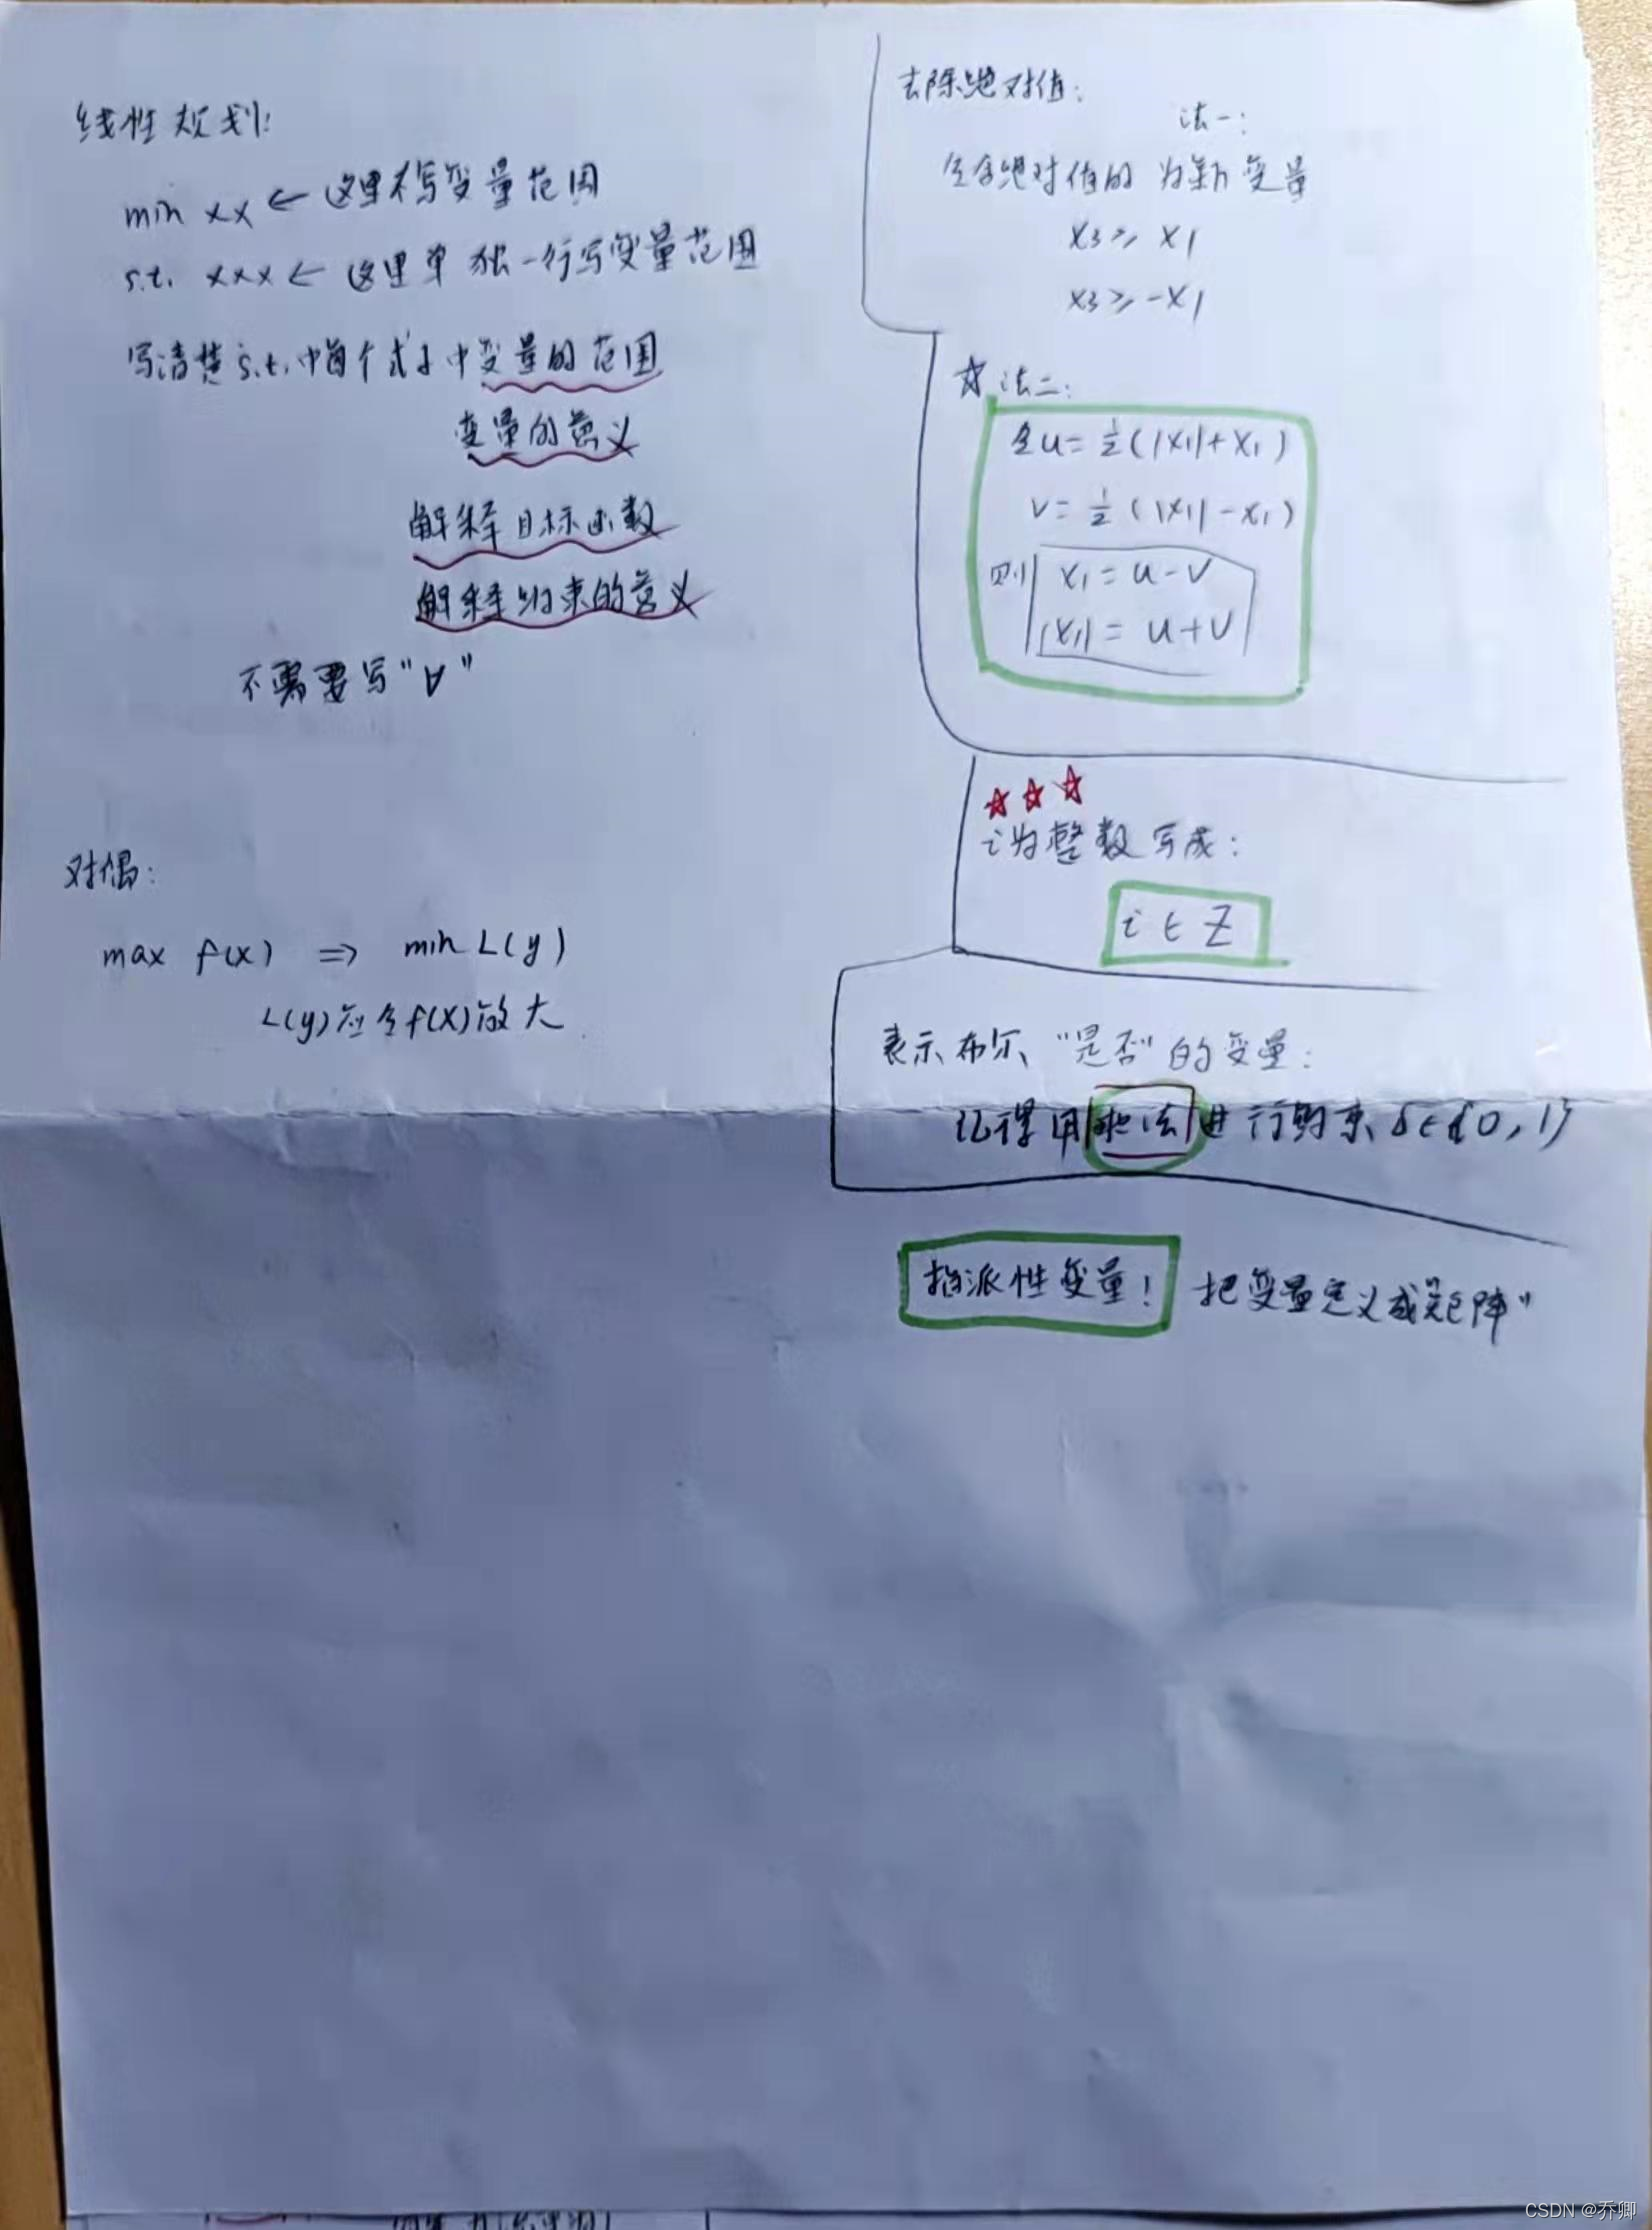 线性规划:
min xx ← 这里不写变量范围
s.t. xxx ← 这里单独一行写变量范围
写清楚 s.t. 中每个式子中变量的范围
变量的意义
解释目标函数
解释约束的意义
不需要写"∀"
对偶:
max f(x) ⇒ min L(y)
L(y)应令f(x)放大.
去除绝对值:
法一:
令含绝对值的 为新变量
x3 ≥ x1
x3 ≥ -x1
☆ 法二:
令u = ½(|x1| + x1)
v = ½(|x1| - x1)
则 x1 = u - v
|x1| = u + v
☆☆☆
i为整数写成:
i ∈ Z
表示布尔"是否"的变量:
记得用 乘法 进行约束 δ∈{0, 1}
指派性变量! 把变量定义成"矩阵"
CSDN @乔卿